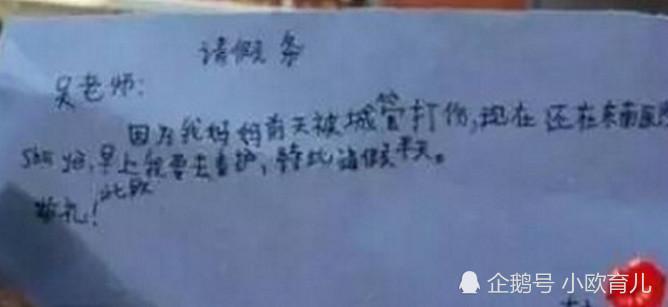 请假条
吴老师:
因为我妈妈前天被城管打伤,现在还在东南医院
早上我要去看护,特此请假半天。
此致
敬礼!
企鹅号 小欧育儿